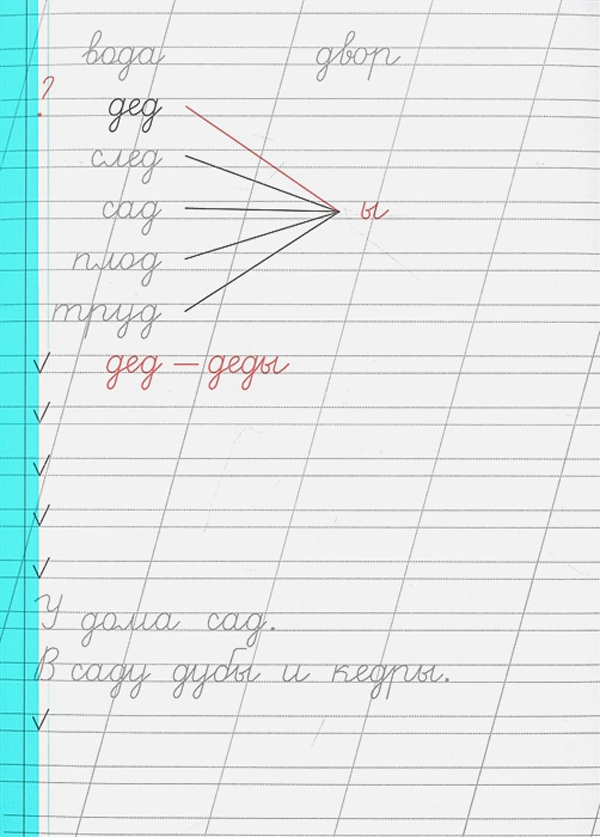 вода двор
?
дед
след
сад ы
плод
труд
дед — деды
У дома сад.
В саду дубы и кедры.